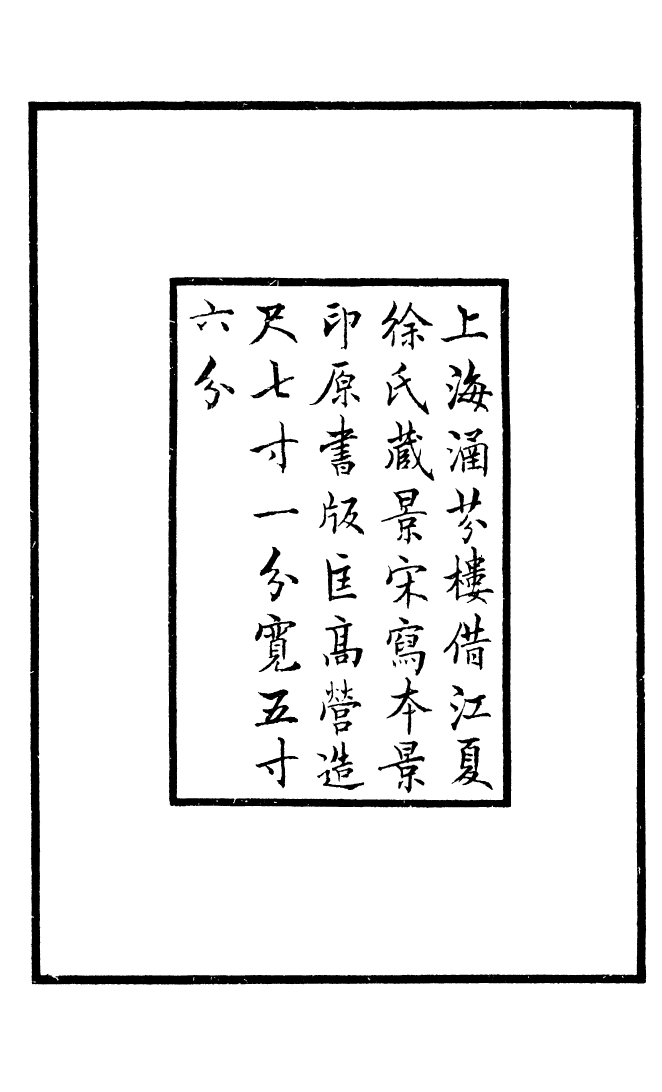 上海涵芬樓借江夏
徐氏藏景宋寫本景
印原書版匡高營造
尺七寸一分寬五寸
六分